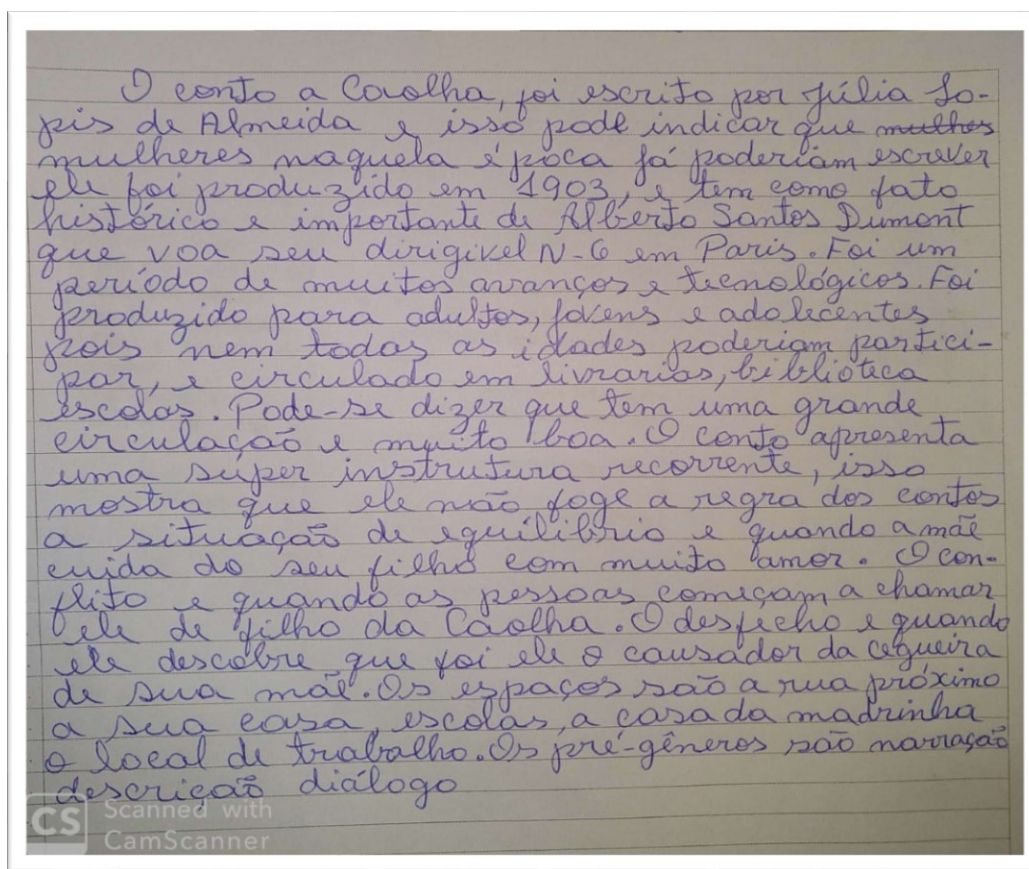 O conto a Caolha, foi escrito por Júlia Lo-
pis de Almeida e isso pode indicar que mulhes
mulheres naquela época já poderiam escrever
ele foi produzido em 1903, e tem como fato
histórico e importante de Alberto Santos Dumont
que voa seu dirigivel N-6 em Paris. Foi um
período de muitos avanços e tecnológicos. Foi
produzido para adultos, jovens e adolecentes
pois nem todas as idades poderiam partici-
par, e circulado em livrarias, biblióteca
escolas. Pode-se dizer que tem uma grande
circulação e muito boa. O conto apresenta
uma super instrutura recorrente, isso
mostra que ele não foge a regra dos contos
a situação de equilíbrio e quando a mãe
cuida do seu filho com muito amor. O con-
flito e quando as pessoas começam a chamar
ele de filho da Caolha. O desfecho e quando
ele descobre que foi ele o causador da cegueira
de sua mãe. Os espaços são a rua próximo
a sua casa, escolas, a casa da madrinha
o local de trabalho. Os pré-gêneros são narração
descrição diálogo
CS Scanned with
CamScanner